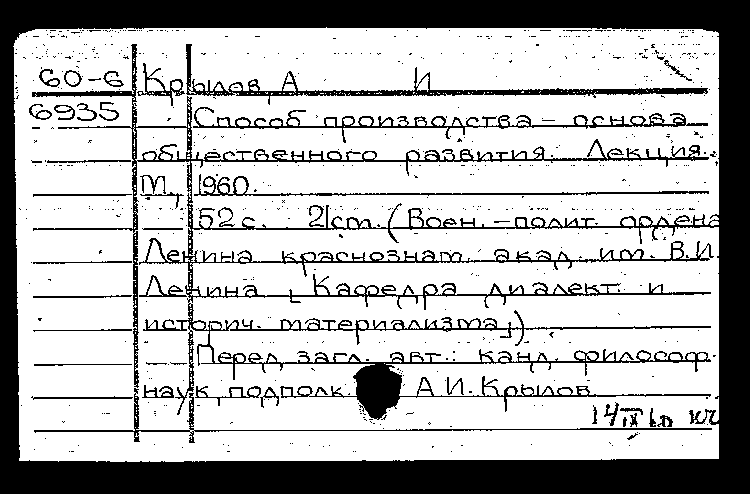 60-6 Крылов, А И
6935 Способ производства – основа
общественного развития. Лекция.
М., 1960.
52 с. 21 cm. (Воен.-полит. ордена
Ленина краснознам. акад. им. В.И.
Ленина [Кафедра диалект. и
историч. материализма])
Перед загл. авт.: канд. философ.
наук, подполк. А.И. Крылов
14 IX 60